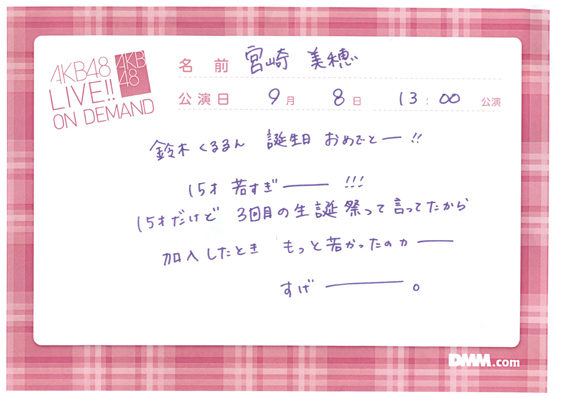 AKB48
LIVE!!
ON DEMAND
AKB
48
名 前 宮崎 美穂
公演日 9月 8日 13:00 公演
鈴木くるるん 誕生日 おめでとー!!
15才 若すぎー!!!
15才だけど 3回目の生誕祭って言ってたから
加入したとき もっと若かったのカー
すげー。
DMM.com